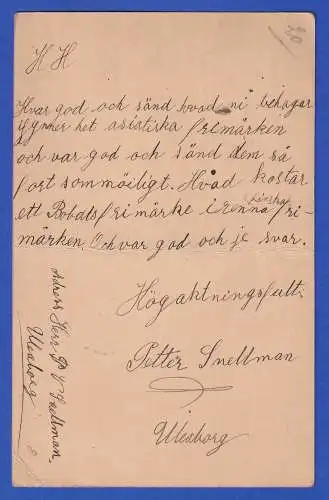 20
H H
Hvar god och sänd hvad ni behagar
Synner het asiatiska frimärken
och var god och sänd dem så
fort sommöiligt. Hvad kostar
ett frimärke i renna finska fri-
märken. Och var god och je svar.
Högaktningsfult.
Petter Snellman
Uleaborg
Adress Herr P Snellman.
Uleaborg